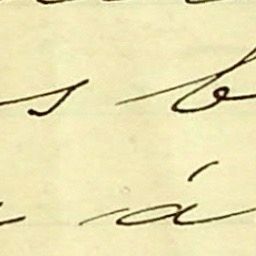 s b
á